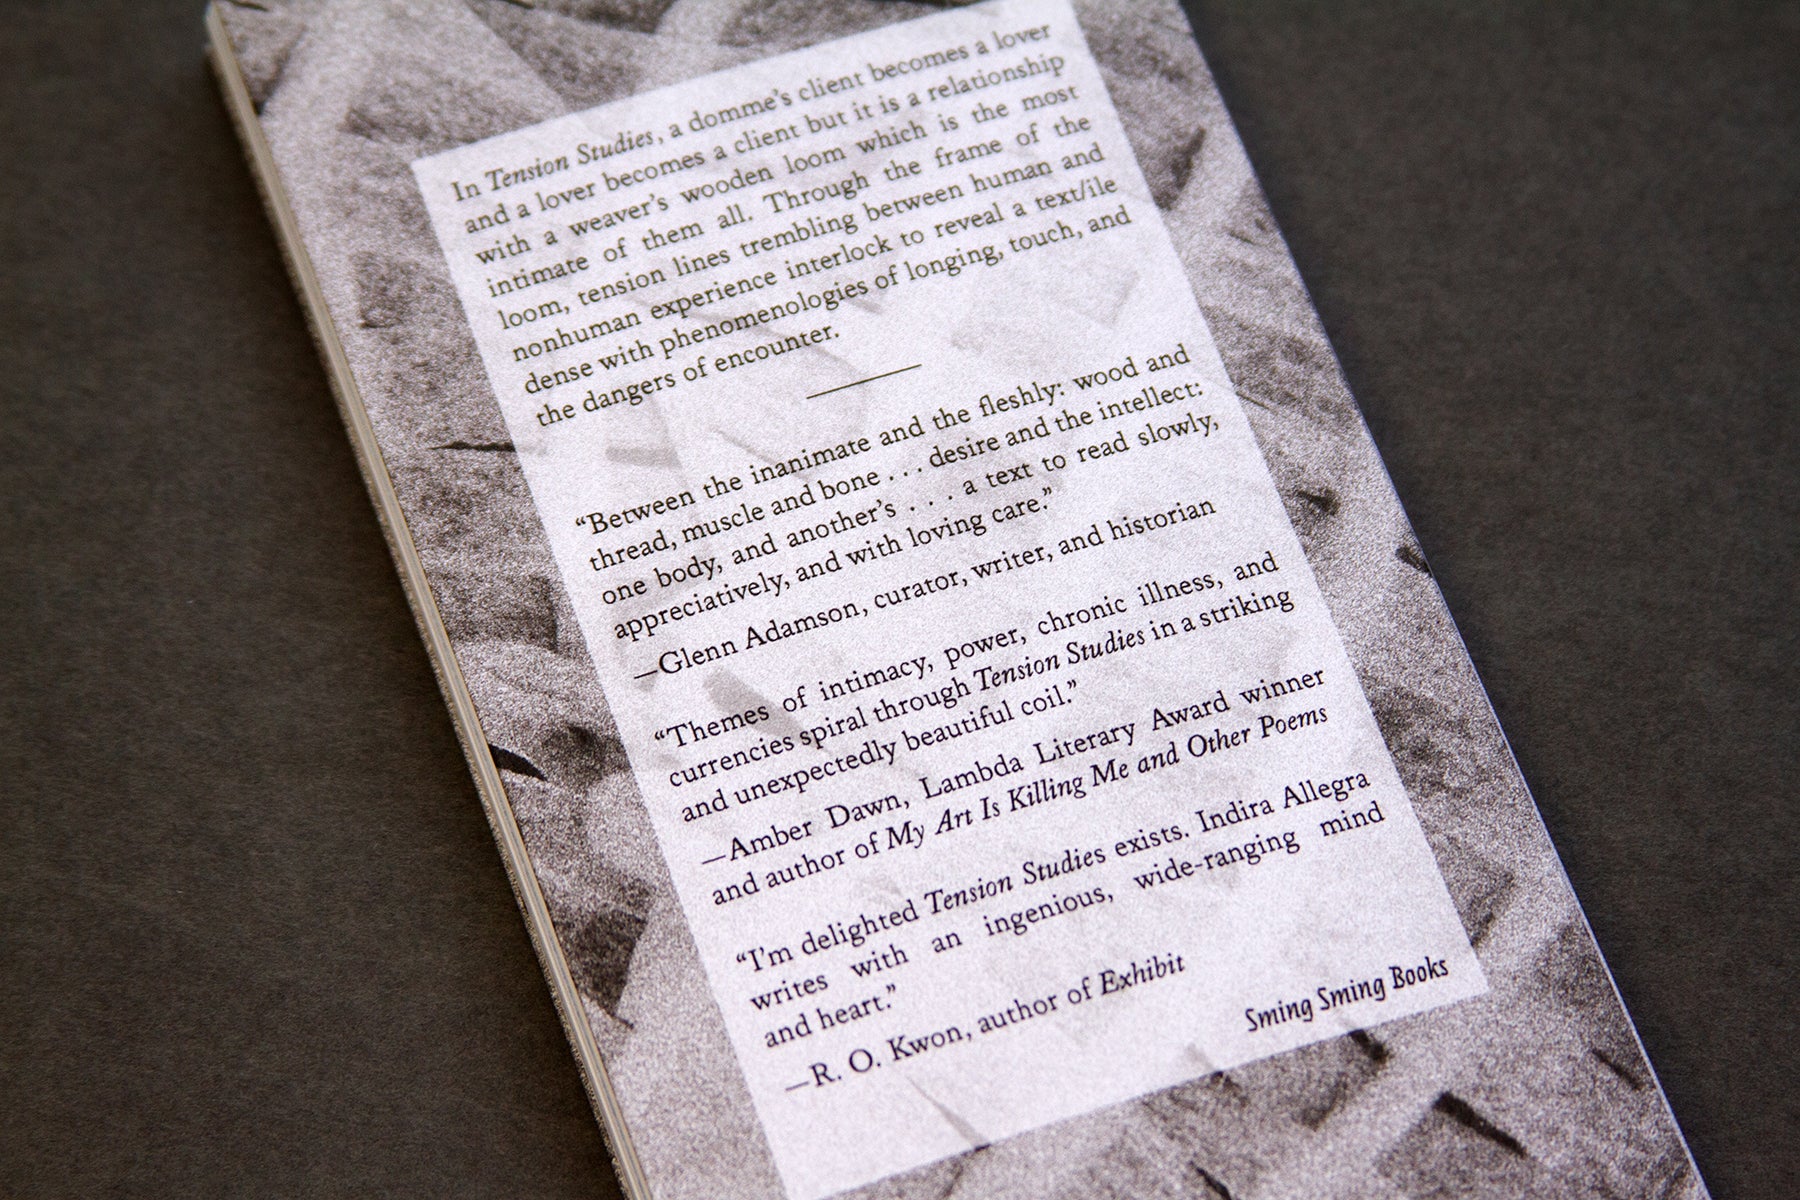 In Tension Studies, a domme's client becomes a lover
and a lover becomes a client but it is a relationship
with a weaver's wooden loom which is the most
intimate of them all. Through the frame of the
loom, tension lines trembling between human and
nonhuman experience interlock to reveal a text/ile
dense with phenomenologies of longing, touch, and
the dangers of encounter.
“Between the inanimate and the fleshly: wood and
thread, muscle and bone . . . desire and the intellect:
one body, and another's . . . a text to read slowly,
appreciatively, and with loving care.”
—Glenn Adamson, curator, writer, and historian
“Themes of intimacy, power, chronic illness, and
currencies spiral through Tension Studies in a striking
and unexpectedly beautiful coil.”
—Amber Dawn, Lambda Literary Award winner
and author of My Art Is Killing Me and Other Poems
“I'm delighted Tension Studies exists. Indira Allegra
writes with an ingenious, wide-ranging mind
and heart.”
—R. O. Kwon, author of Exhibit
Sming Sming Books